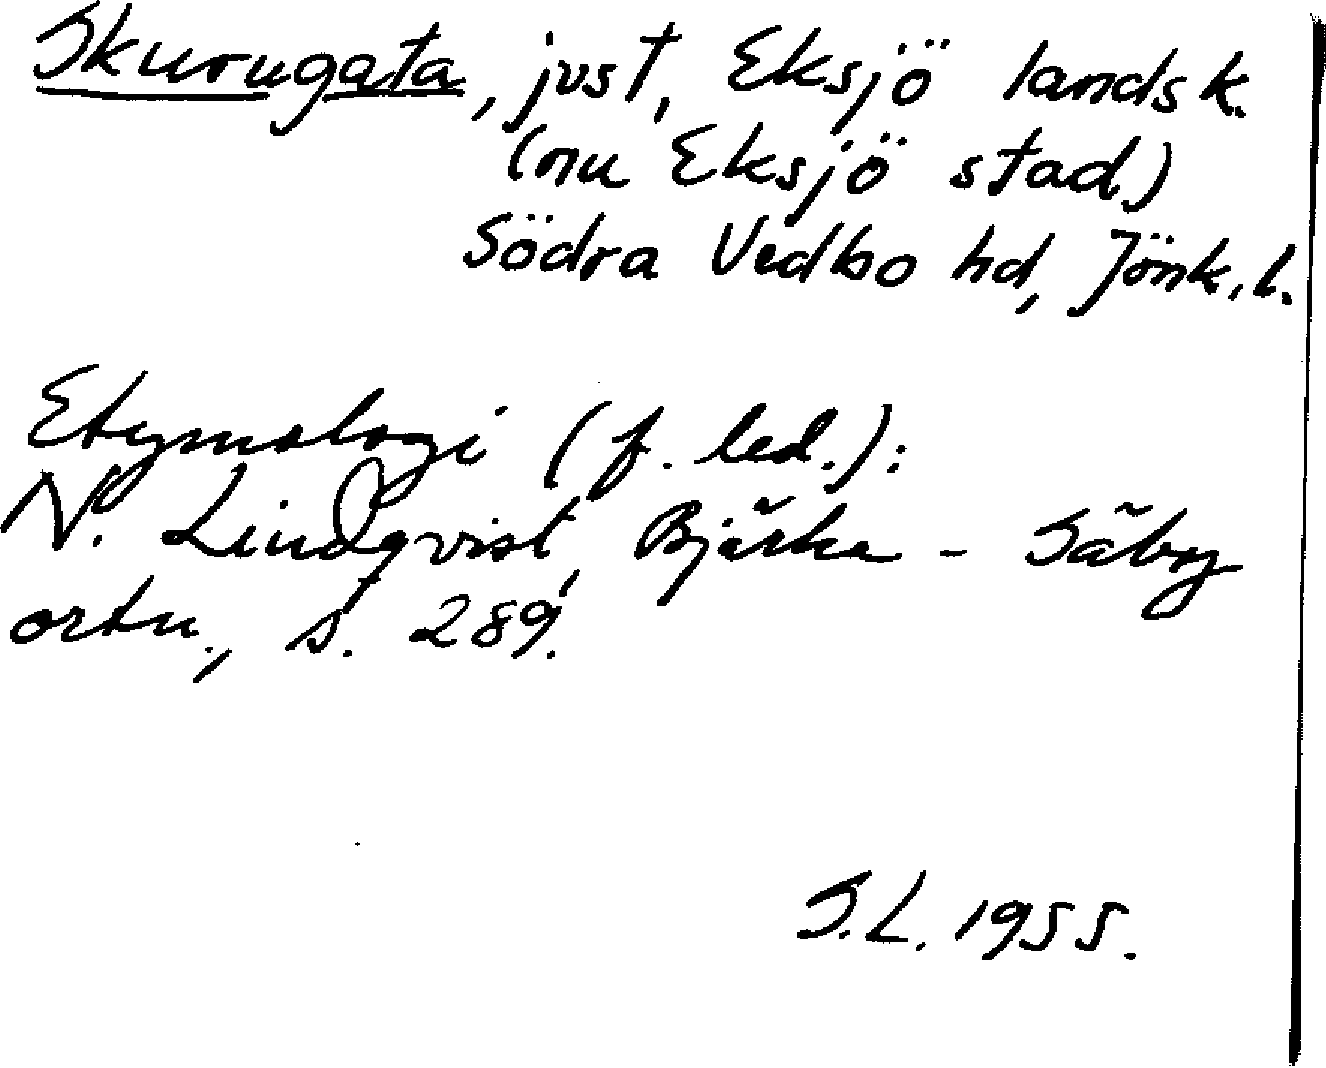 Skurugata, just, Eksjö landsk.
(nu Eksjö stad)
Södra Vedbo hd, Jönk. l.
Etymologi (f. led.):
N. Lindqvist, Bjärka - Säby
ortn., s. 289.
S.L. 1955.